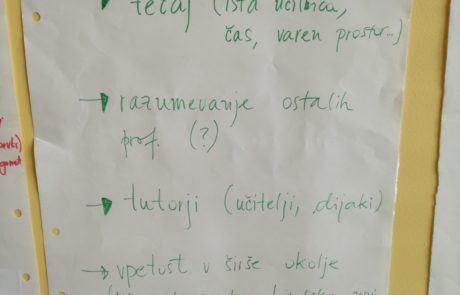 → tečaj (ista učilnica,
čas, varen prostor...)
→ razumevanje ostalih
prof. (?)
→ tutorji (učitelji, dijaki)
→ vpetost v širše okolje